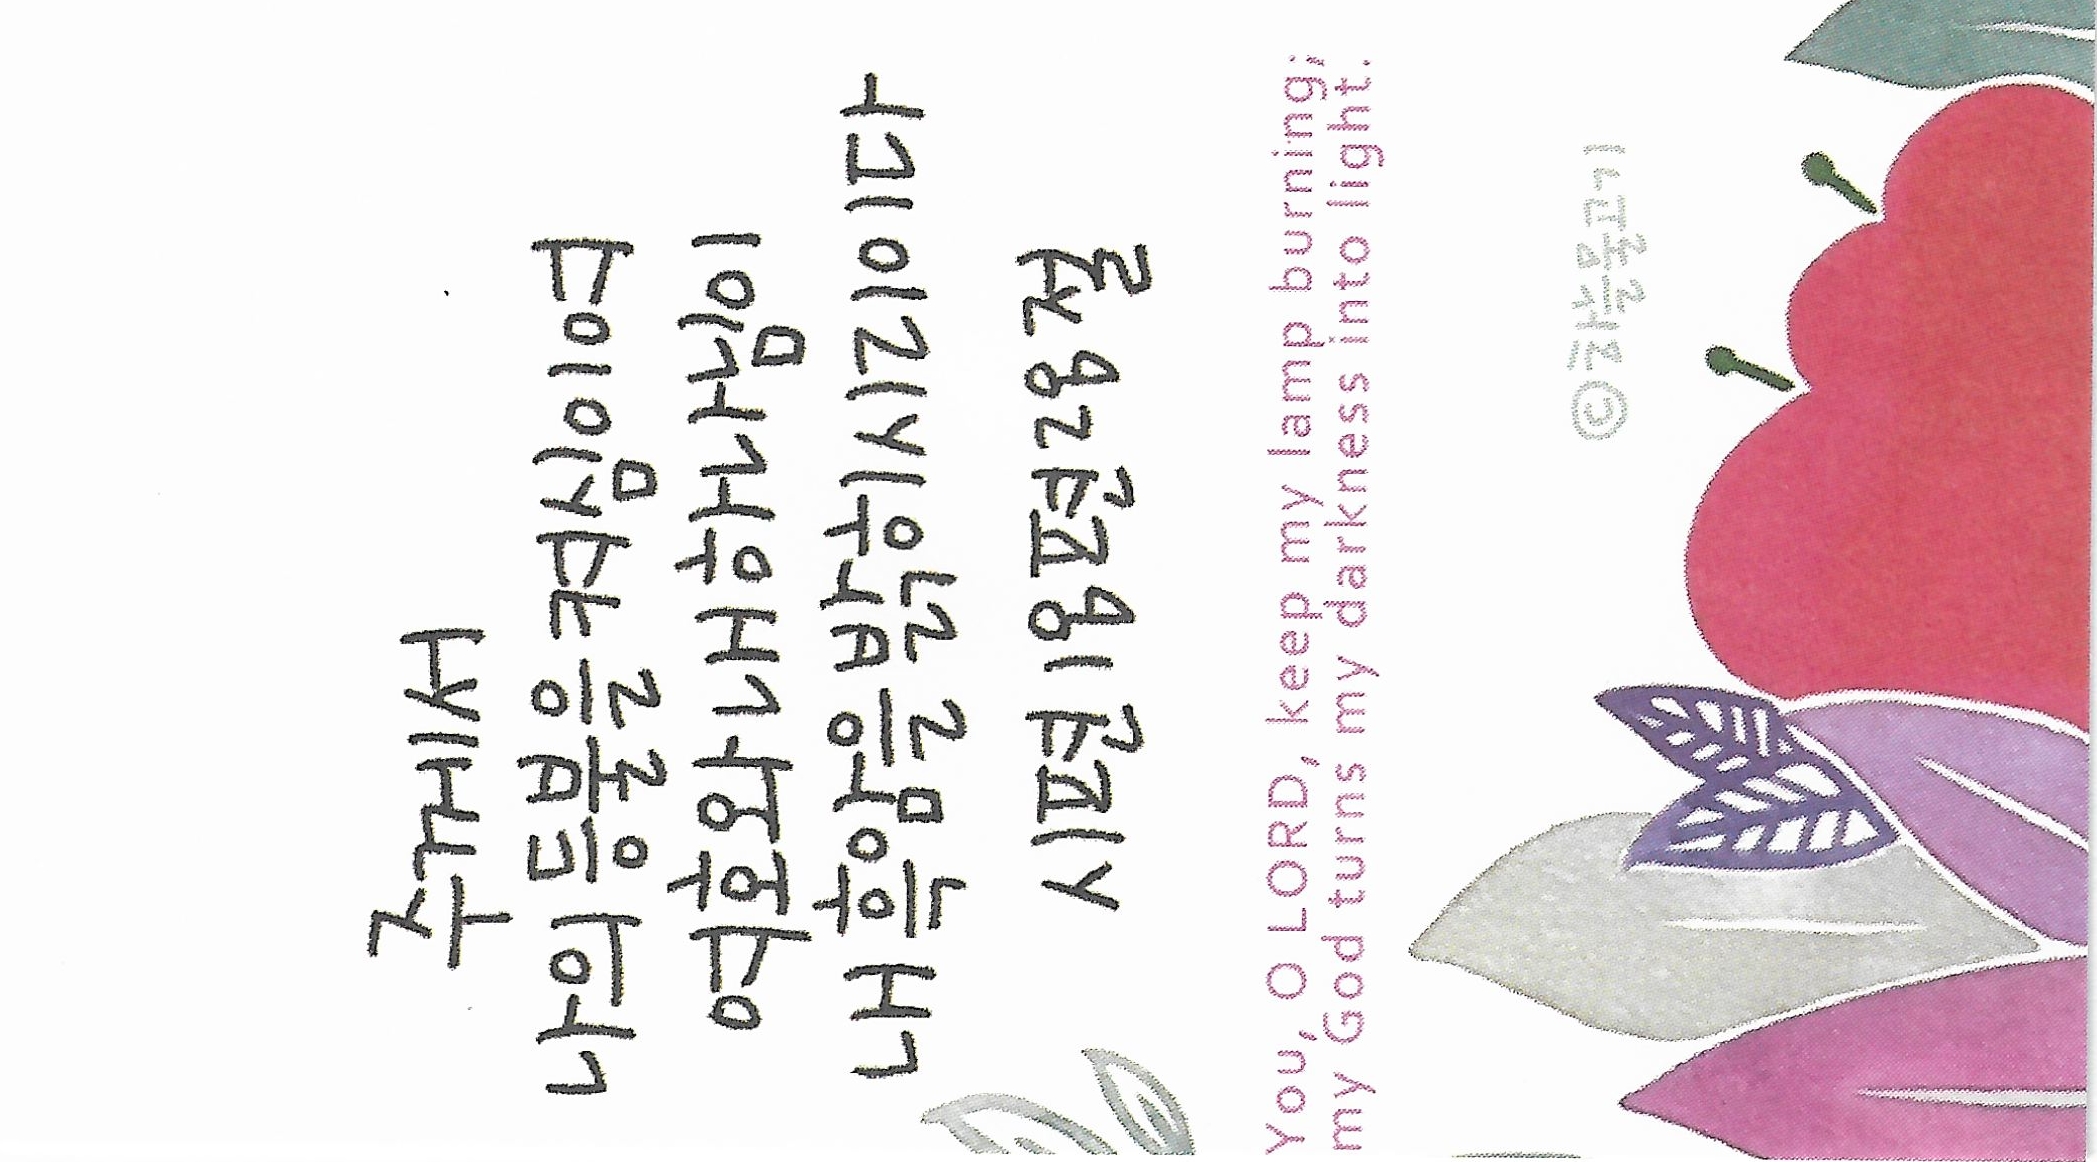 주께서
나의 등불을 켜심이여
여호와 내 하나님이
내 흑암을 밝히시리이다
시편 18편 28절
You, O LORD, keep my lamp burning;
my God turns my darkness into light.
©하늘물고기